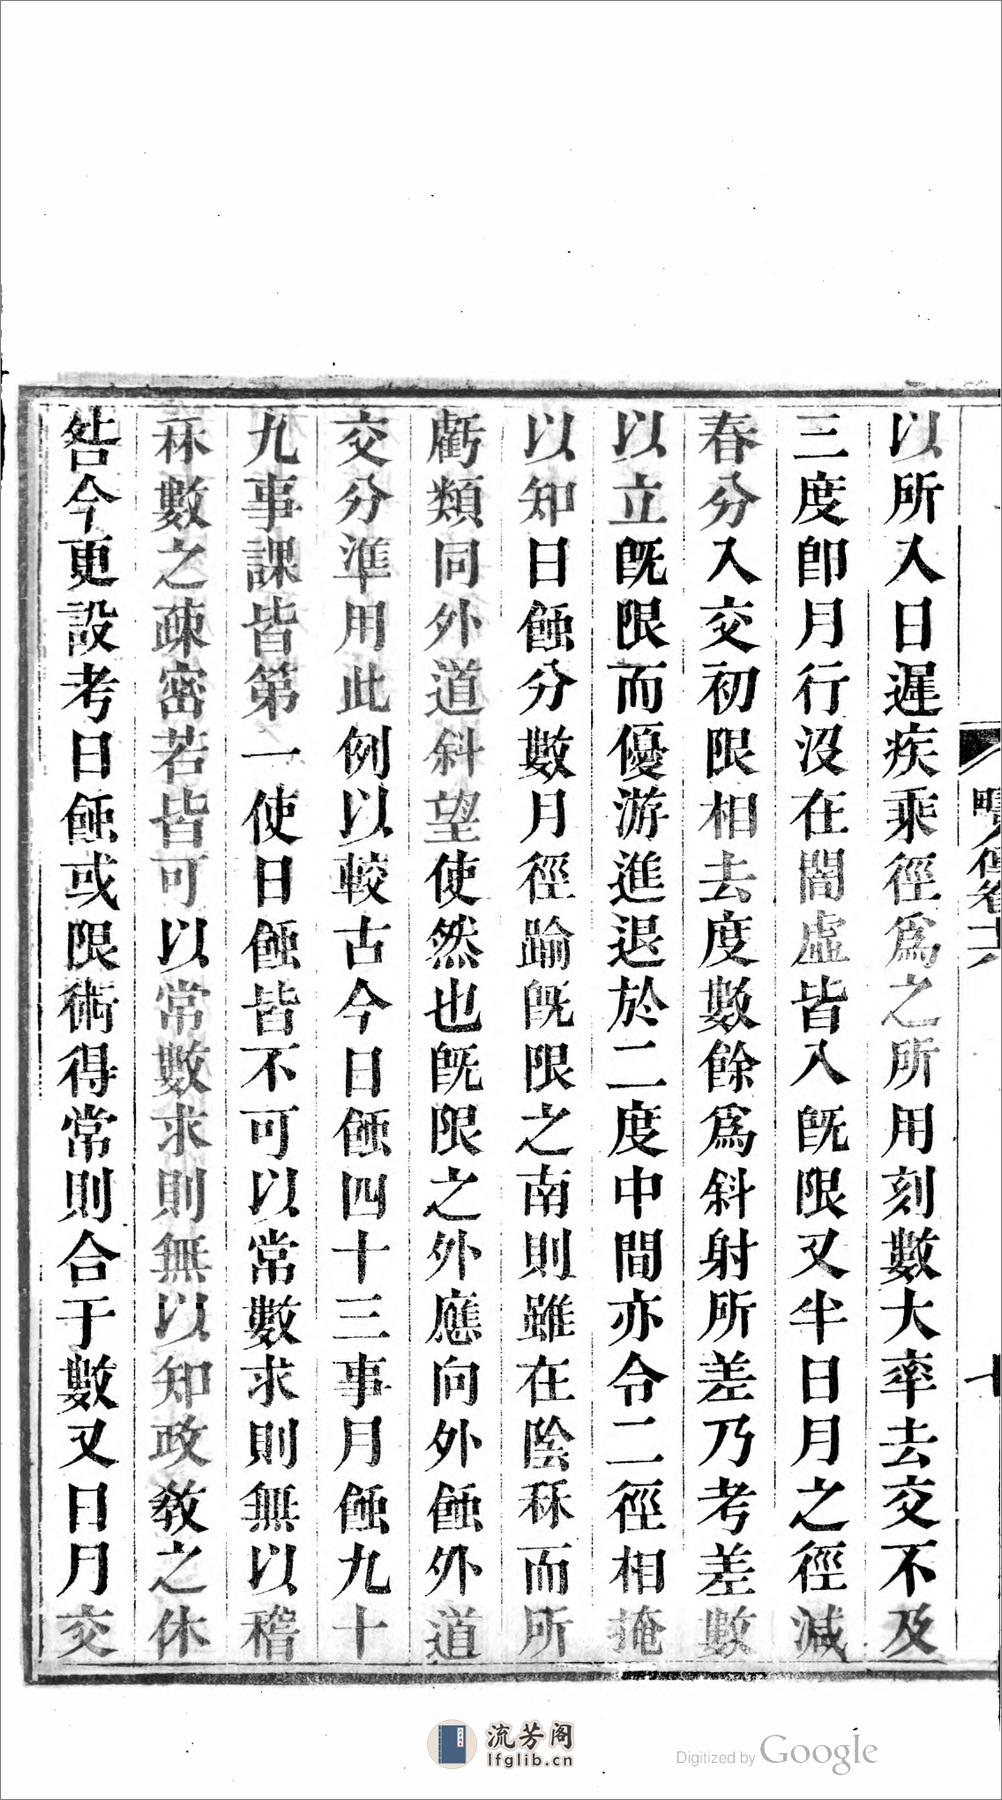 以所入日遲疾乘徑爲之所用刻數大率去交不及
三度卽月行沒在闇虛皆入旣限又半日月之徑減
春分入交初限相去度數餘爲斜射所差乃考差數
以立旣限而優游進退於二度中間亦令二徑相掩
以知日蝕分數月徑踰旣限之南則雖在陰秝而所
虧類同外道斜望使然也旣限之外應向外蝕外道
交分準用此例以較古今日蝕四十三事月蝕九十
九事課皆第一使日蝕皆不可以常數求則無以稽
秝數之疎密若皆可以常數求則無以知政敎之休
咎今更設考日蝕或限術得常則合于數又日月交
疇人傳卷十六
十
流芳阁
lfglib.cn
Digitized by Google